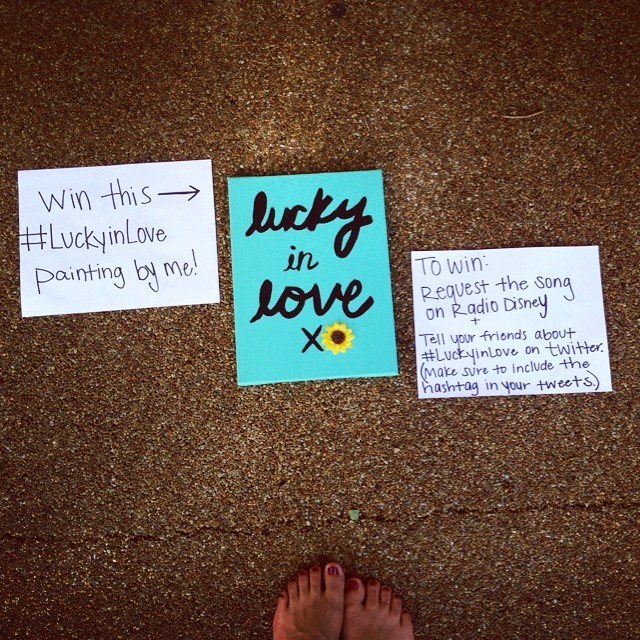 Win this →
#LuckyinLove
painting by me!
lucky
in
love
X
To win:
Request the song
on Radio Disney
+
Tell your friends about
#LuckyinLove on twitter.
(Make sure to include the
hashtag in your tweets.)